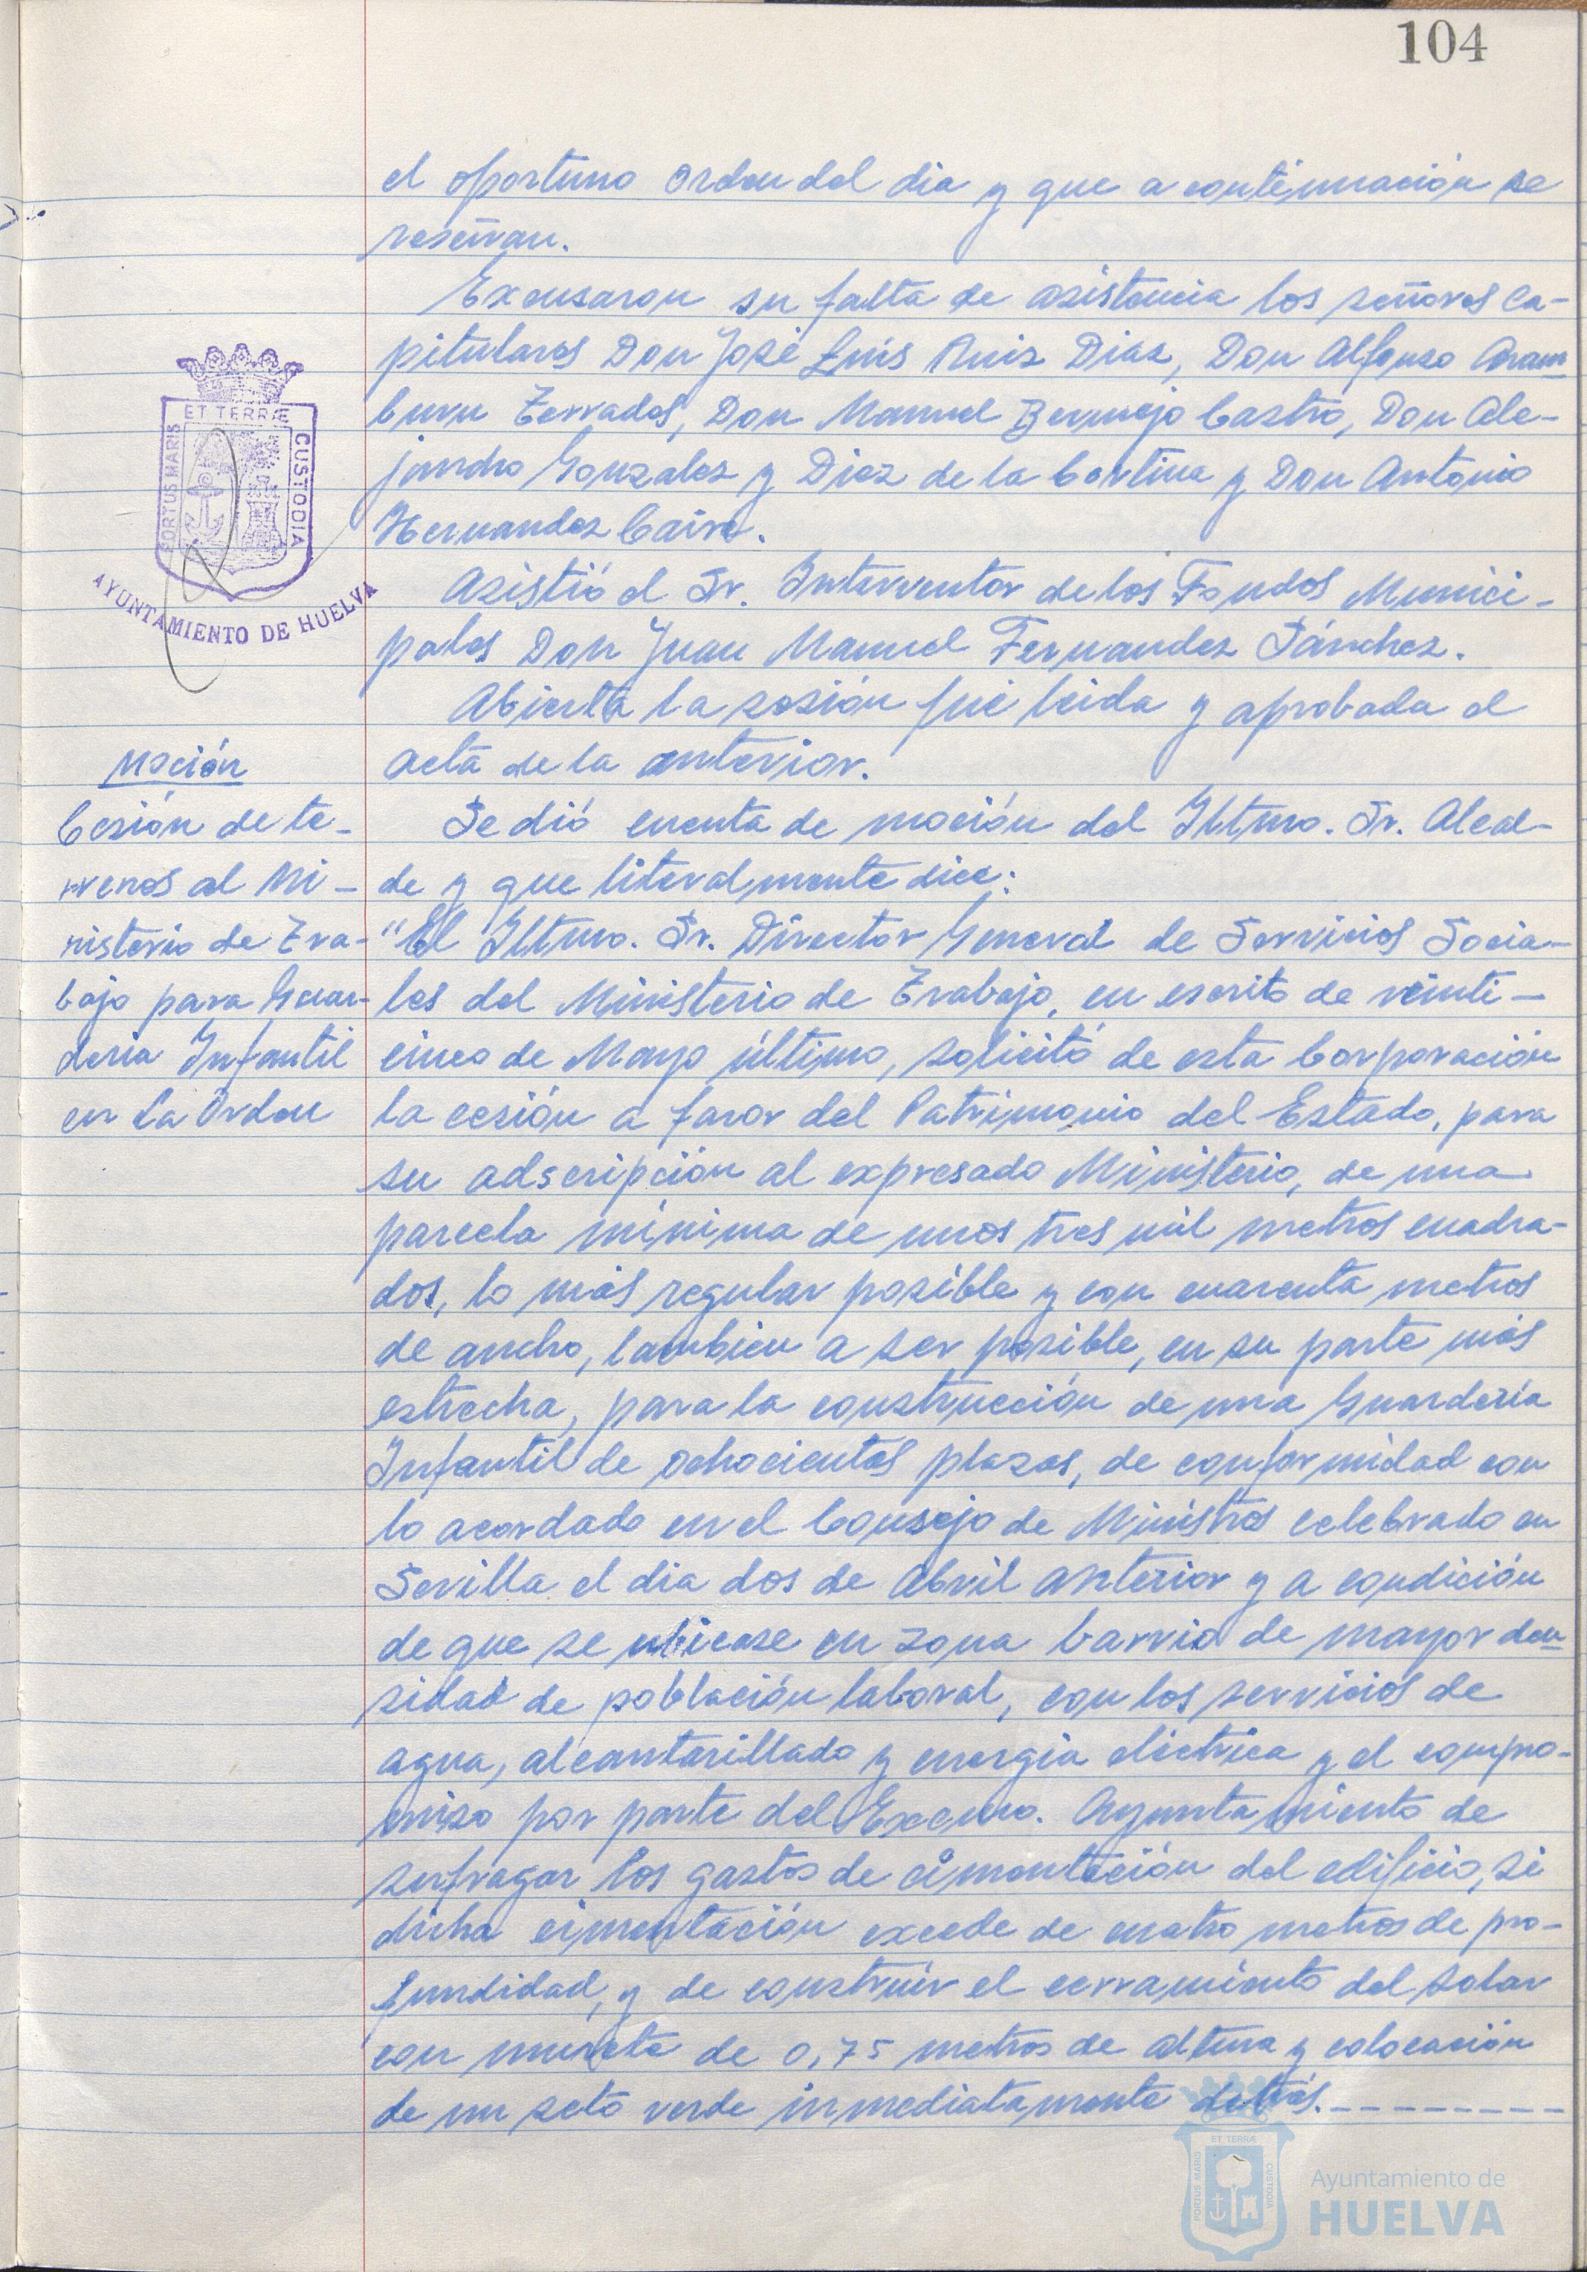 104
el oportuno orden del dia y que a continuación se
reseñan.
Excusaron su falta de asistencia los señores Ca-
pitulares Don José Luis Ruiz Diaz, Don Alfonso Aram-
buru Terrades, Don Manuel Bermejo Castro, Don Ale-
jandro Gonzalez y Diez de la Cortina y Don Antonio
Hernandez Caire.
Asistió el Sr. Interventor de los Fondos Munici-
pales Don Juan Manuel Fernandez Sánchez.
Abierta la sesión fué leida y aprobada el
acta de la anterior.
Moción
Cesión de te-
rrenos al Mi-
nisterio de Tra-
bajo para Guar-
deria Infantil
en La Orden
Se dió cuenta de moción del Iltmo. Sr. Alcal-
de y que literalmente dice:
"El Iltmo. Sr. Director General de Servicios Socia-
les del Ministerio de Trabajo, en escrito de veinti-
cinco de Mayo último, solicitó de esta Corporación
la cesión a favor del Patrimonio del Estado, para
su adscripción al expresado Ministerio, de una
parcela mínima de unos tres mil metros cuadra-
dos, lo más regular posible y con cuarenta metros
de ancho, tambien a ser posible, en su parte más
estrecha, para la construcción de una Guardería
Infantil de ochocientas plazas, de conformidad con
lo acordado en el Consejo de Ministros celebrado en
Sevilla el dia dos de Abril anterior y a condición
de que se ubicase en zona barrio de mayor den-
sidad de población laboral, con los servicios de
agua, alcantarillado y energia eléctrica y el compro-
miso por parte del Excmo. Ayuntamiento de
sufragar los gastos de cimentación del edificio, si
dicha cimentación excede de cuatro metros de pro-
fundidad, y de construir el cerramiento del solar
con murete de 0,75 metros de altura y colocación
de un seto verde inmediatamente detrás.---------
PORTUS MARIS
ET TERRÆ
CUSTODIA
AYUNTAMIENTO DE HUELVA
PORTUS MARIS
ET TERRÆ
CUSTODIA
Ayuntamiento de
HUELVA